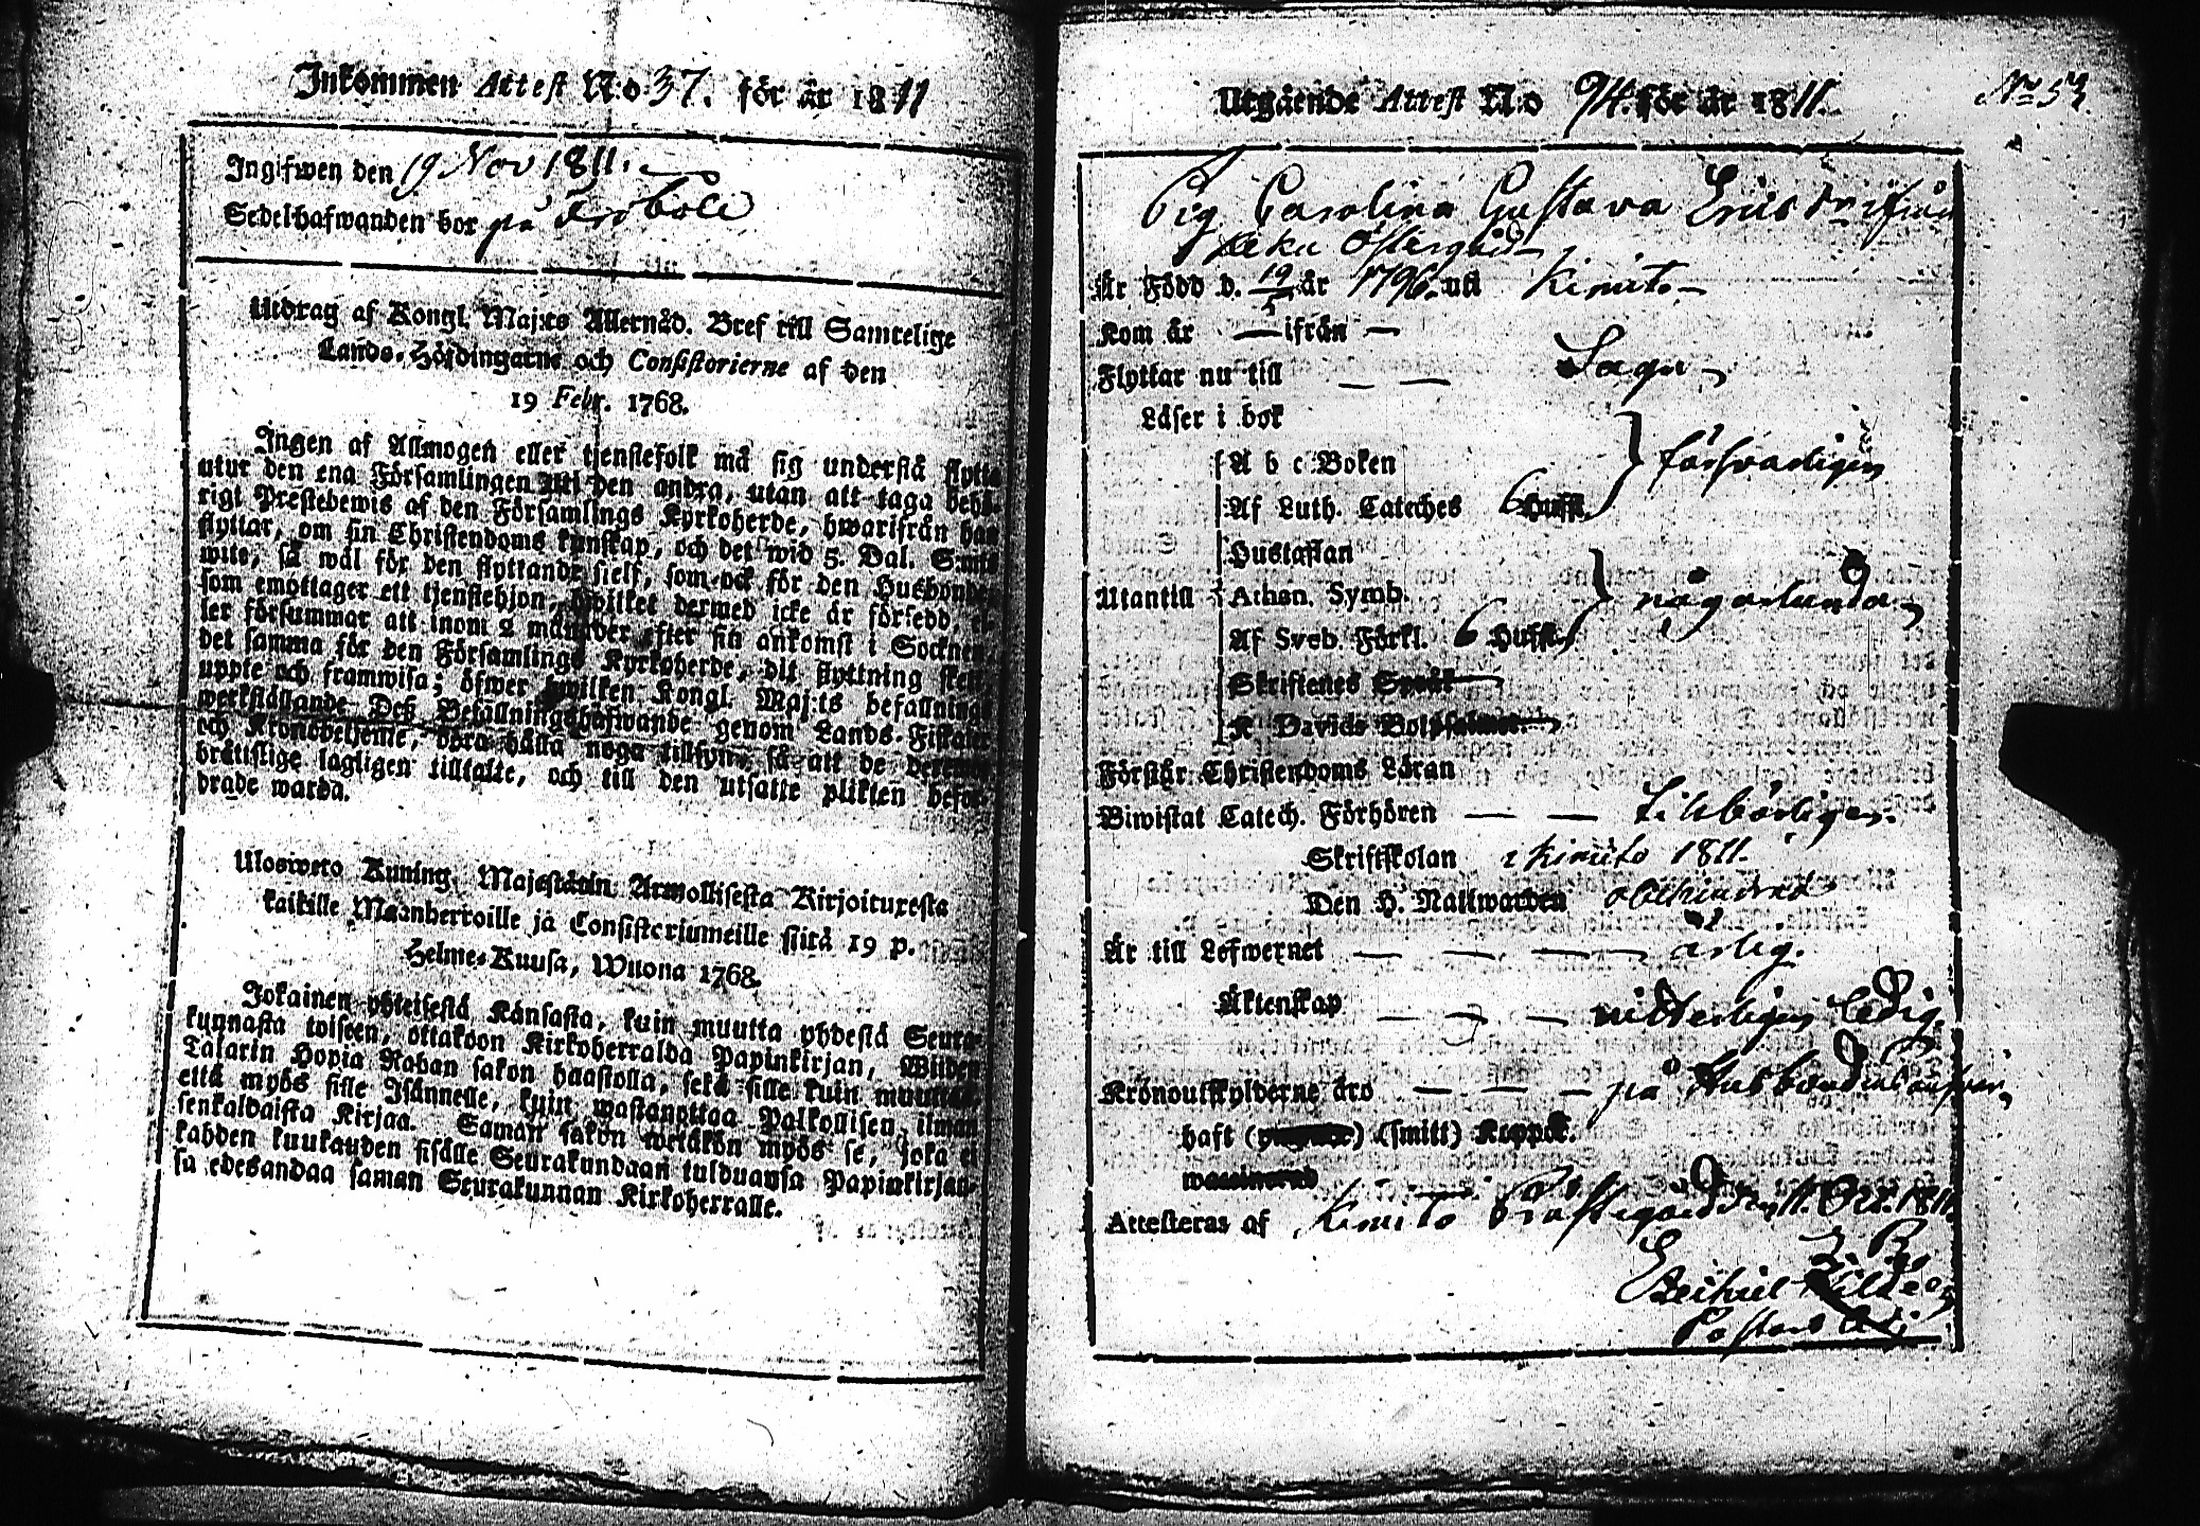 Inkommen Attest N:o 37. för år 1811
Ingifwen den 19 Nov 1811.
Sedelhafwanden bor på
Utdrag af Kongl. Maj:ts Allernåd. Bref till Samtelige
Lands-Höfdingarne och Consistorierne af den
19 Febr. 1768.
Ingen af Allmogen eller tjenstefolk må sig understå flytta
utur den ena Församlingen till den andra, utan att taga behö-
rigt Prestebewis af den Församlings Kyrkoherde, hwarifrån han
flyttar, om sin Christendoms kunskap, och det wid 5. Dal. S:mts
wite, så wäl för den flyttande sielf, som ock för den Husbonde
som emottager ett tjenstehjon, hwilket dermed icke är försedd, el-
ler försummar att inom 2 månader efter sin ankomst i Socknen
det samma för den Församlings Kyrkoherde, dit flyttning sker
uppte och framwisa; öfwer hwilken Kongl. Maj:ts befallnings
werkställande Deß Befallningshafwande genom Lands-Fiskaler
och Kronobetjente, böra hålla noga tillsyn, så att de deremot
brättslige lagligen tilltalte, och till den utsatte plikten befor-
drade warda.
Ulosweto Kuning. Majestätin Armollisesta Kirjoituxesta
kaikille Maanherroille ja Consistoriumeille siitä 19 p.
Helme-Kuusa, Wuona 1768.
Jokainen yhteisestä Kansasta, kuin muutta yhdestä Seura-
kunnasta toiseen, ottakoon Kirkoherralda Papinkirjan, Wiiden
Talarin Hopia Rahan sakon haastolla, sekä sille kuin muuttaa,
että myös sille Isännelle, kuin wastanottaa Palkollisen ilman
senkaldaista Kirjaa. Saman sakon wetäkön myös se, joka ei
kahden kuukauden sisälle Seurakundaan tulduansa Papinkirjan-
sa edesandaa saman Seurakunnan Kirkoherralle.
Utgående Attest N:o 94. för år 1811.
Pig Carolina Gustava Ericsdr ifrån
Östergård
Är Född d. 19/5 år 1796. uti Kimito
Kom år — ifrån —
Flyttar nu till — — Sagu
Läser i bok
A b c Boken
Af Luth. Cateches 6 Hufst. försvarligen
Hustaflan
Utantill Athan. Symb. någorlunda
Af Sveb. Förkl. 6 Hufst.
Skriftenes Språk
K Davids Botpsalmer
Förstår Christendoms Läran
Biwistat Catech. Förhören — — tillbörligen.
Skriftskolan i Kimito 1811.
Den H. Nattwarden obehindrad
Är till Lefwernet — — — — ärlig.
Äktenskap — — — witterligen ledig
Kronoutskylderne äro — — — på
haft (smitt) Koppor.
Attesteras af Kimito Prästegård den 11. Oct. 1811.